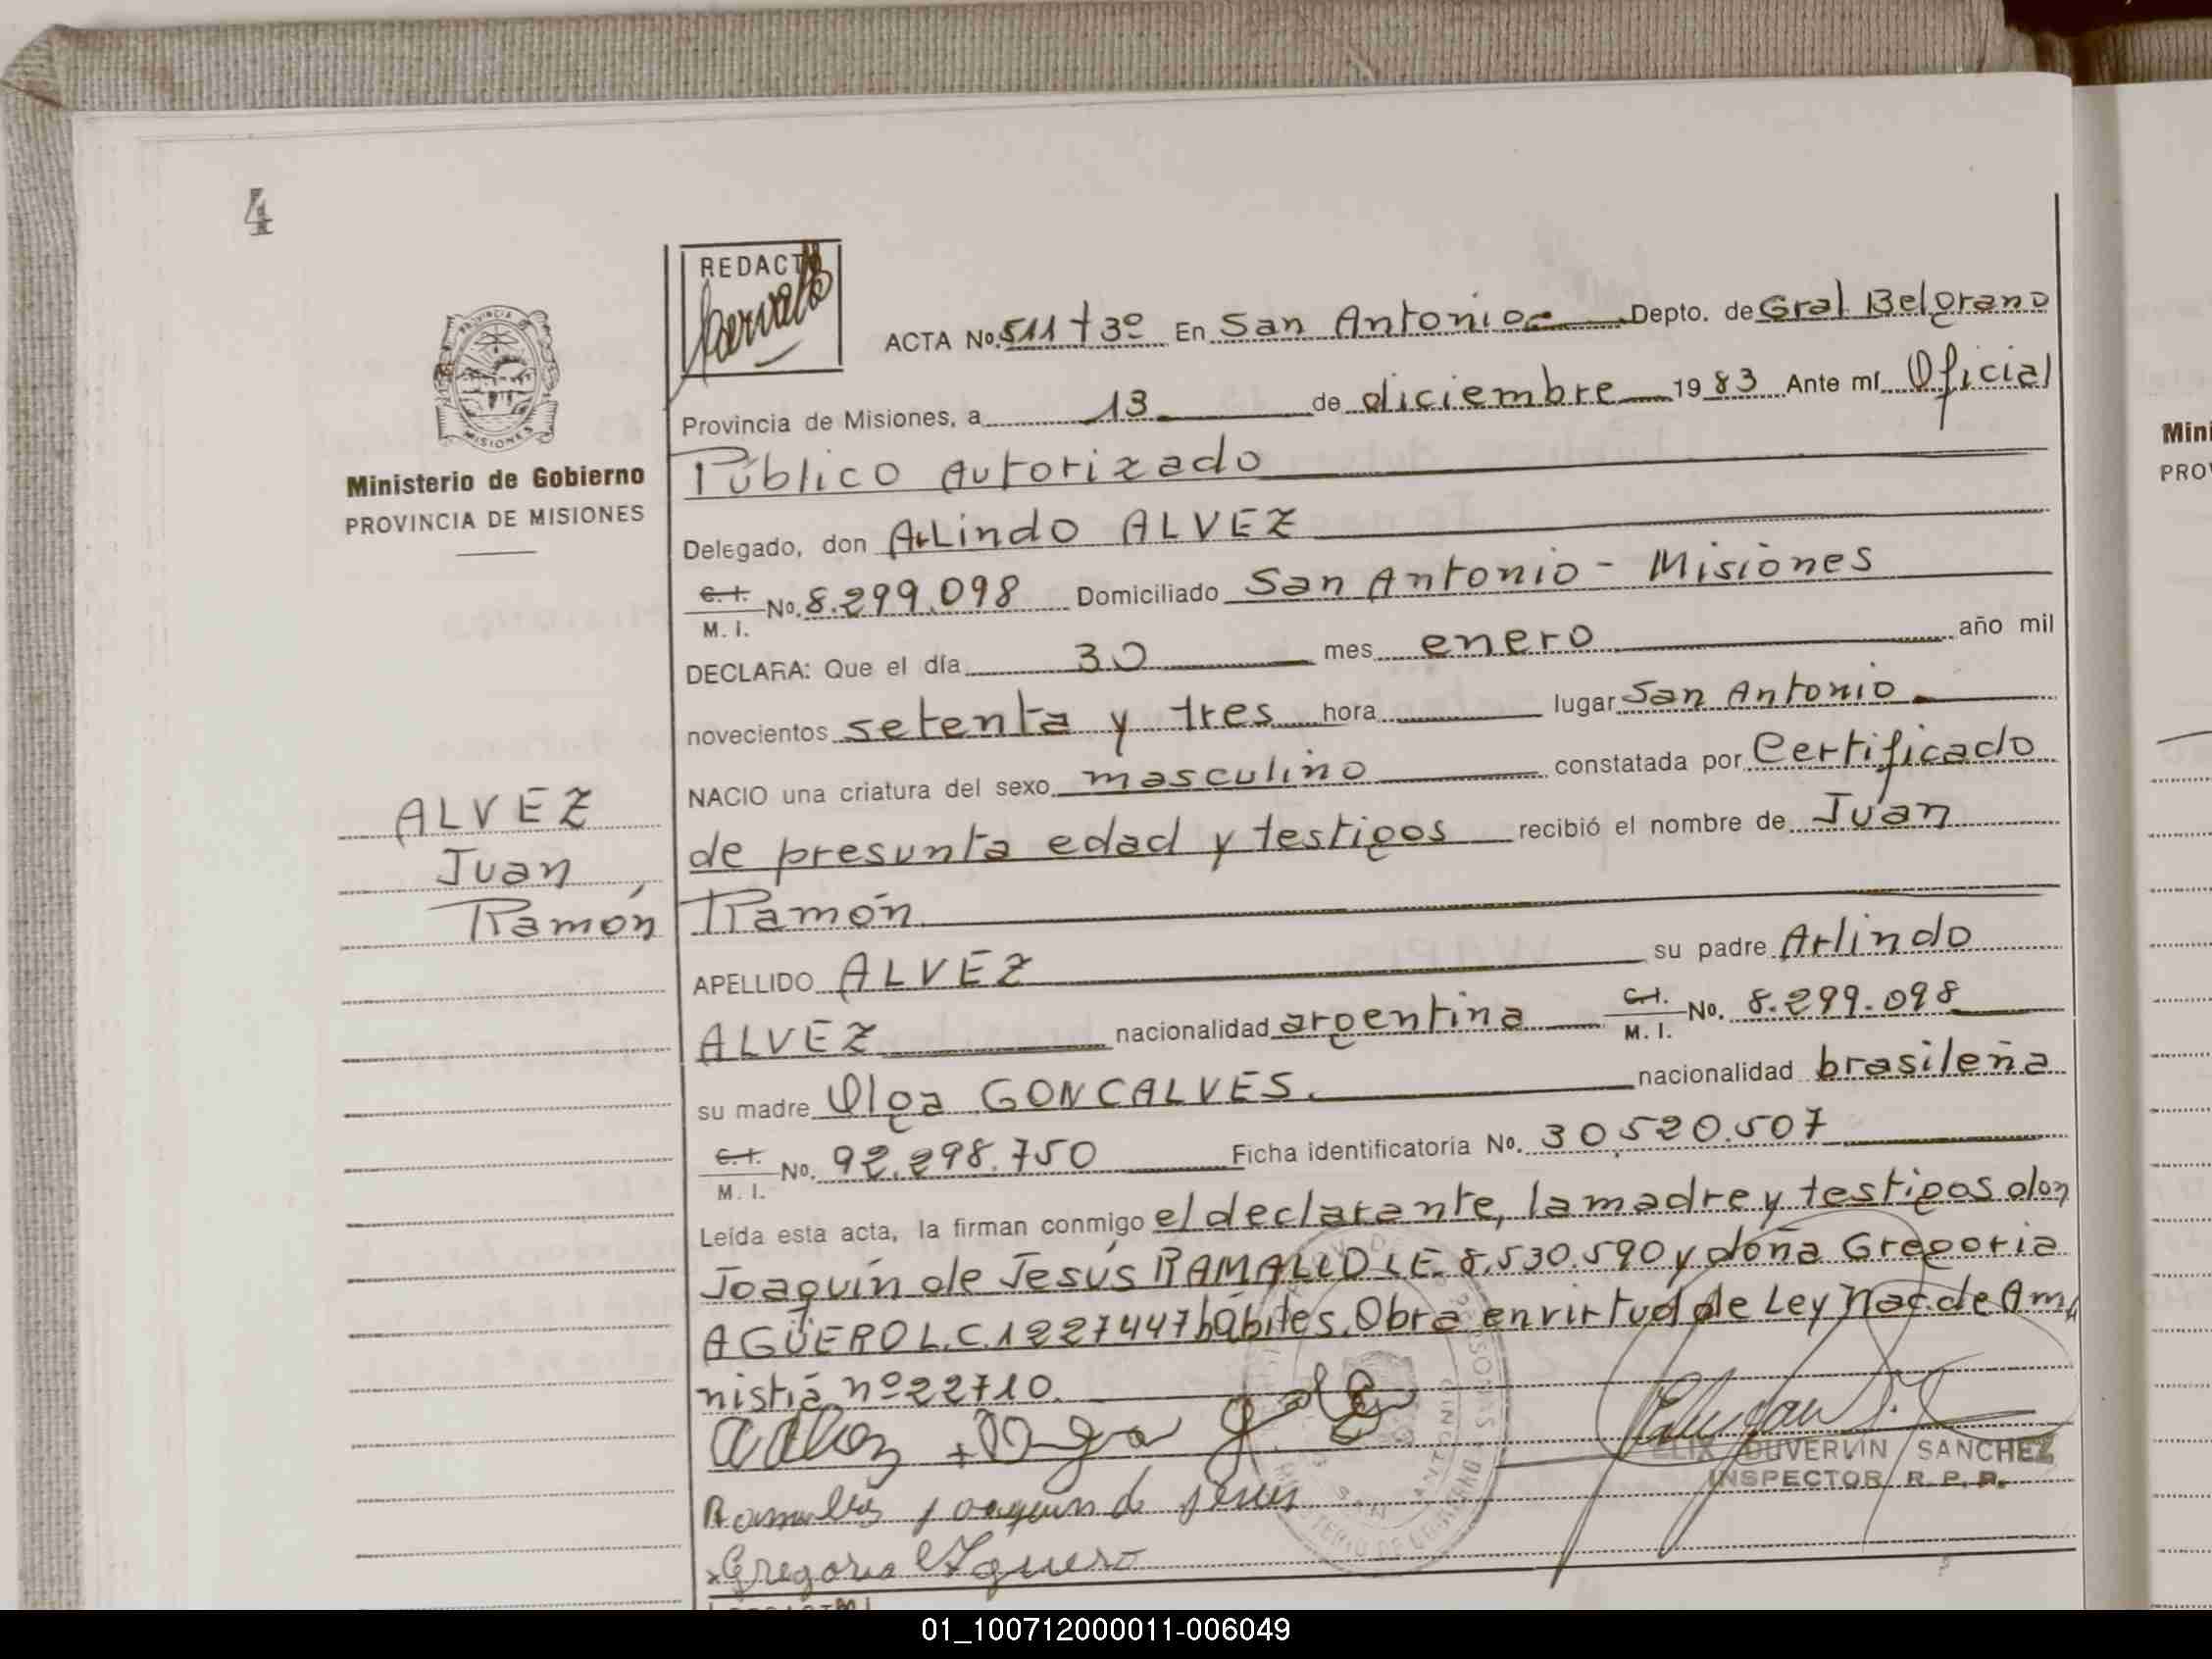 4
REDACTO
ACTA No. 511 T 3º En San Antonio Depto. de Gral. Belgrano
Provincia de Misiones, a 13 de diciembre 1983 Ante mí Oficial
Público Autorizado
PROVINCIA DE
MISIONES
Ministerio de Gobierno
PROVINCIA DE MISIONES
Delegado, don Arlindo ALVEZ
C. I.
M. I. No. 8.299.098 Domiciliado San Antonio - Misiones
DECLARA: Que el día 30 mes enero año mil
novecientos setenta y tres hora lugar San Antonio.
NACIO una criatura del sexo masculino constatada por Certificado
de presunta edad y testigos recibió el nombre de Juan
Ramón.
ALVEZ
Juan
Ramón
APELLIDO ALVEZ su padre Arlindo
ALVEZ nacionalidad argentina C. I. M. I. No. 8.299.098
su madre Olga GONCALVES. nacionalidad brasileña
C. I.
M. I. No. 92.298.750 Ficha identificatoria No. 30.520.507
Leída esta acta, la firman conmigo el declarante, la madre y testigos don
Joaquín de Jesús L.E. 8.530.590 y doña Gregoria
AGÜERO L.C. 1227447 hábiles. Obra en virtud de Ley Nac. de Am
nistía nº 22710.
Joaquin de Jesus
x Gregoria Aguero
DUVERLIN SANCHEZ
INSPECTOR R. P. P.
SAN ANTONIO
MINISTERIO DE GOBIERNO
Mini
PROV
01_100712000011-006049